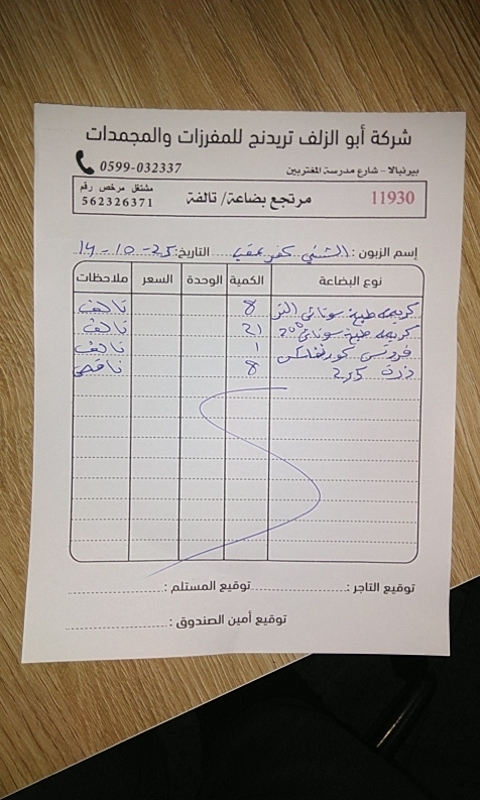 شركة أبو الزلف تريدنج للمفرزات والمجمدات
بيرنبالا - شارع مدرسة المغتربين
0599-032337
11930
مرتجع بضاعة/ تالفة
مشتغل مرخص رقم
562326371
إسم الزبون : الشني كفر عقب التاريخ: 25-10-14
نوع البضاعة الكمية الوحدة السعر ملاحظات
كريمة طبخ 8 تالف
كريمة طبخ 21 تالف
1 تالف
ذرة 8 ناقص
توقيع التاجر : توقيع المستلم :
توقيع أمين الصندوق :